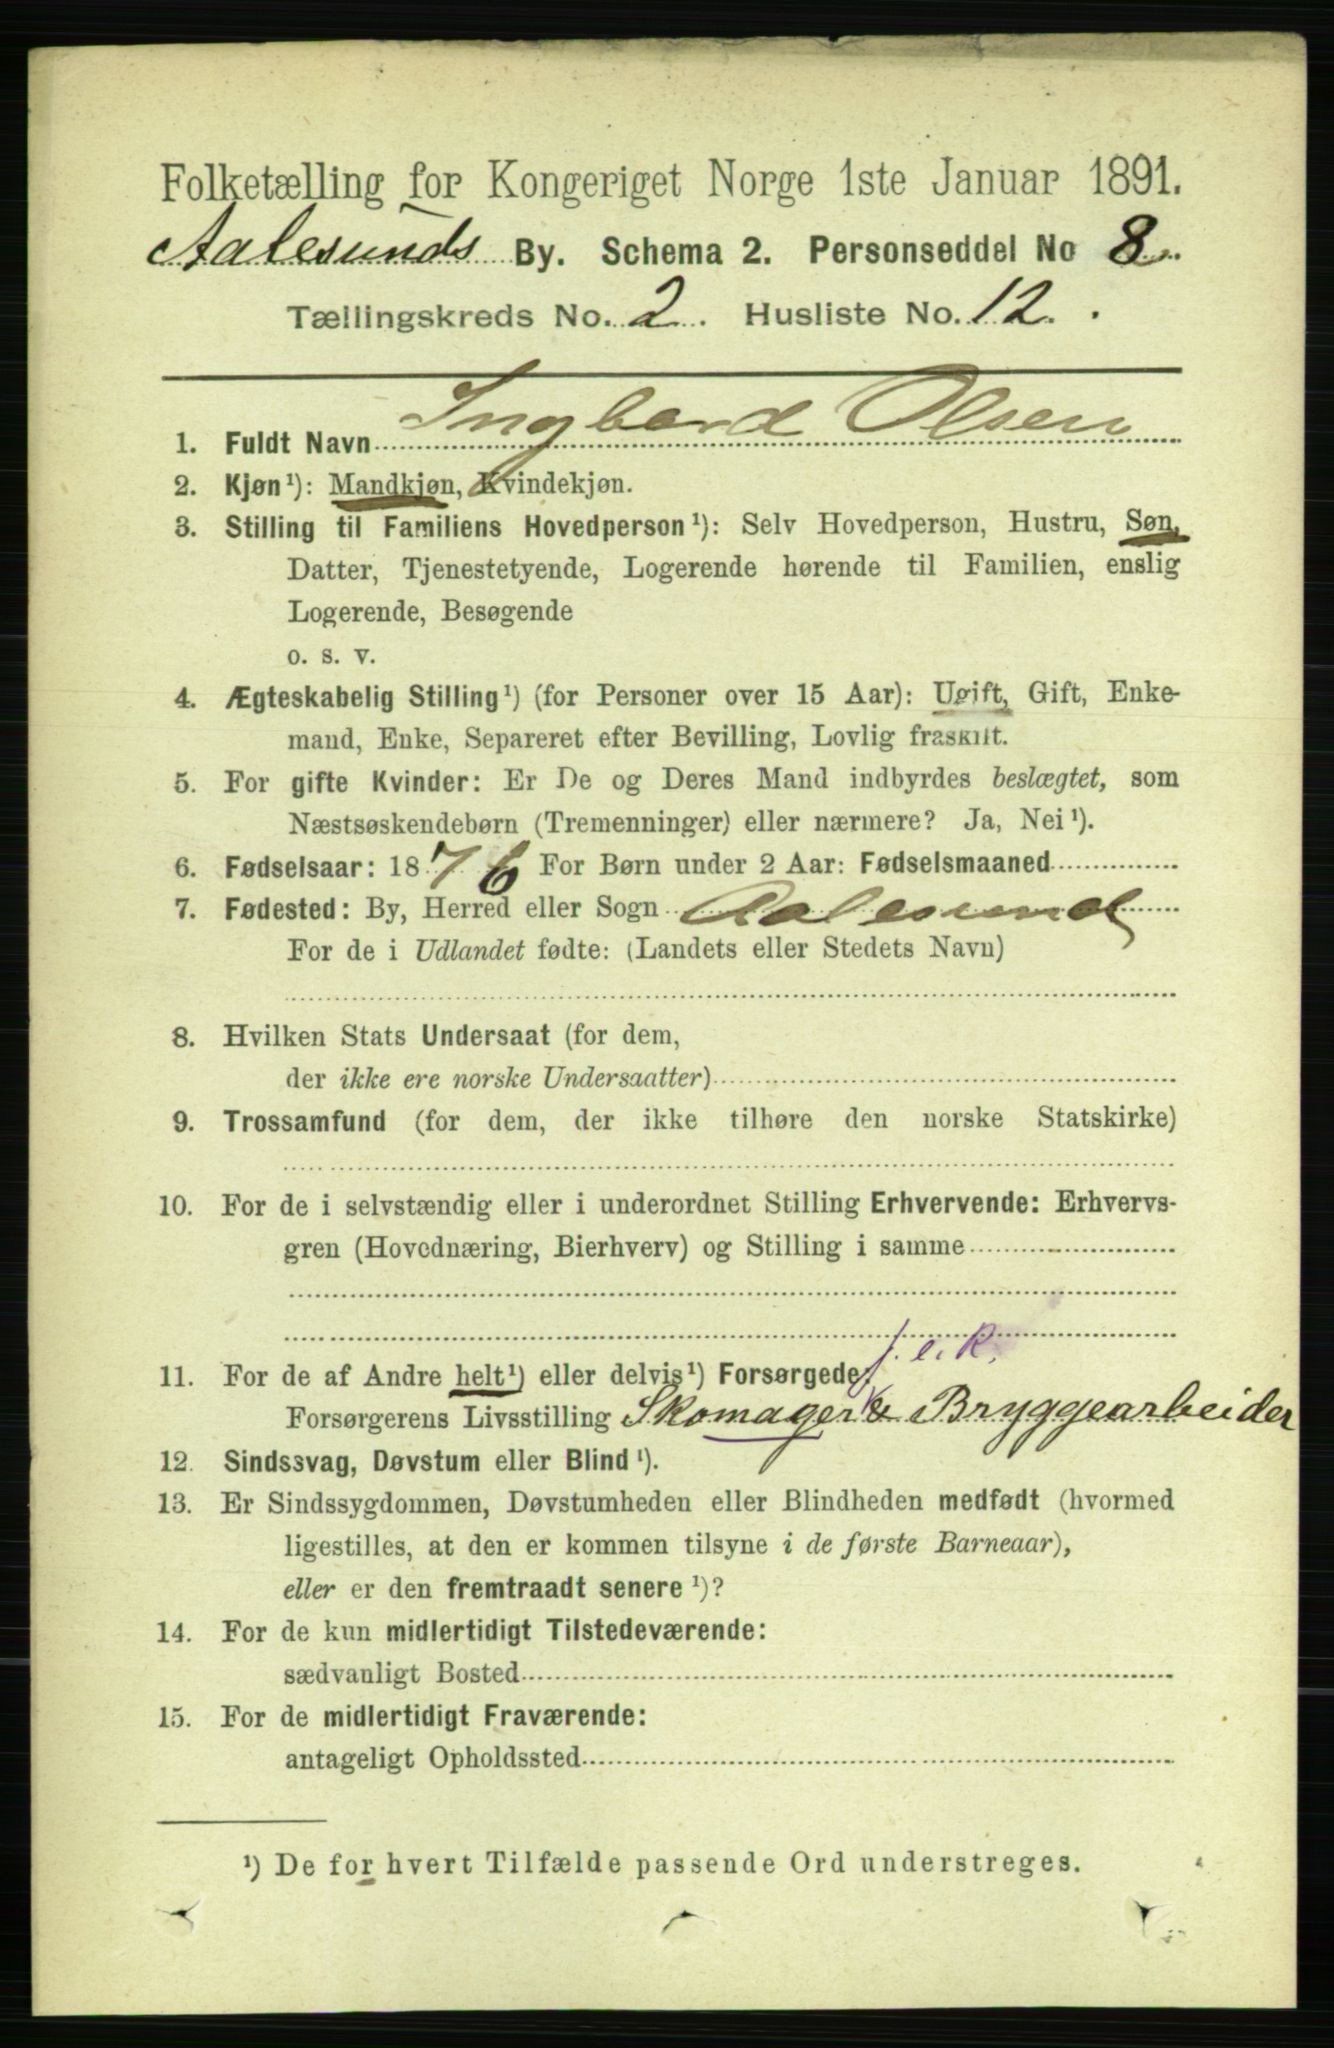 Folketælling for Kongeriget Norge 1ste Januar 1891.
Aalesunds By. Schema 2. Personseddel No 8.
Tællingskreds No. 2. Husliste No. 12.
1. Fuldt Navn Ingbard Olsen
2. Kjøn¹): Mandkjøn, Kvindekjøn.
3. Stilling til Familiens Hovedperson¹): Selv Hovedperson, Hustru, Søn,
Datter, Tjenestetyende, Logerende hørende til Familien, enslig
Logerende, Besøgende
o. s. v.
4. Ægteskabelig Stilling¹) (for Personer over 15 Aar): Ugift, Gift, Enke-
mand, Enke, Separeret efter Bevilling, Lovlig fraskilt.
5. For gifte Kvinder: Er De og Deres Mand indbyrdes beslægtet, som
Næstsøskendebørn (Tremenninger) eller nærmere? Ja, Nei¹).
6. Fødselsaar: 1876 For Børn under 2 Aar: Fødselsmaaned
7. Fødested: By, Herred eller Sogn Aalesund
For de i Udlandet fødte: (Landets eller Stedets Navn)
8. Hvilken Stats Undersaat (for dem,
der ikke ere norske Undersaatter)
9. Trossamfund (for dem, der ikke tilhøre den norske Statskirke)
10. For de i selvstændig eller i underordnet Stilling Erhvervende: Erhvervs-
gren (Hovednæring, Bierhverv) og Stilling i samme
f. e. R.
11. For de af Andre helt¹) eller delvis¹) Forsørgede:
Forsørgerens Livsstilling Skomager & Bryggearbeider
12. Sindssvag, Døvstum eller Blind¹).
13. Er Sindssygdommen, Døvstumheden eller Blindheden medfødt (hvormed
ligestilles, at den er kommen tilsyne i de første Barneaar),
eller er den fremtraadt senere¹)?
14. For de kun midlertidigt Tilstedeværende:
sædvanligt Bosted
15. For de midlertidigt Fraværende:
antageligt Opholdssted
¹) De for hvert Tilfælde passende Ord understreges.